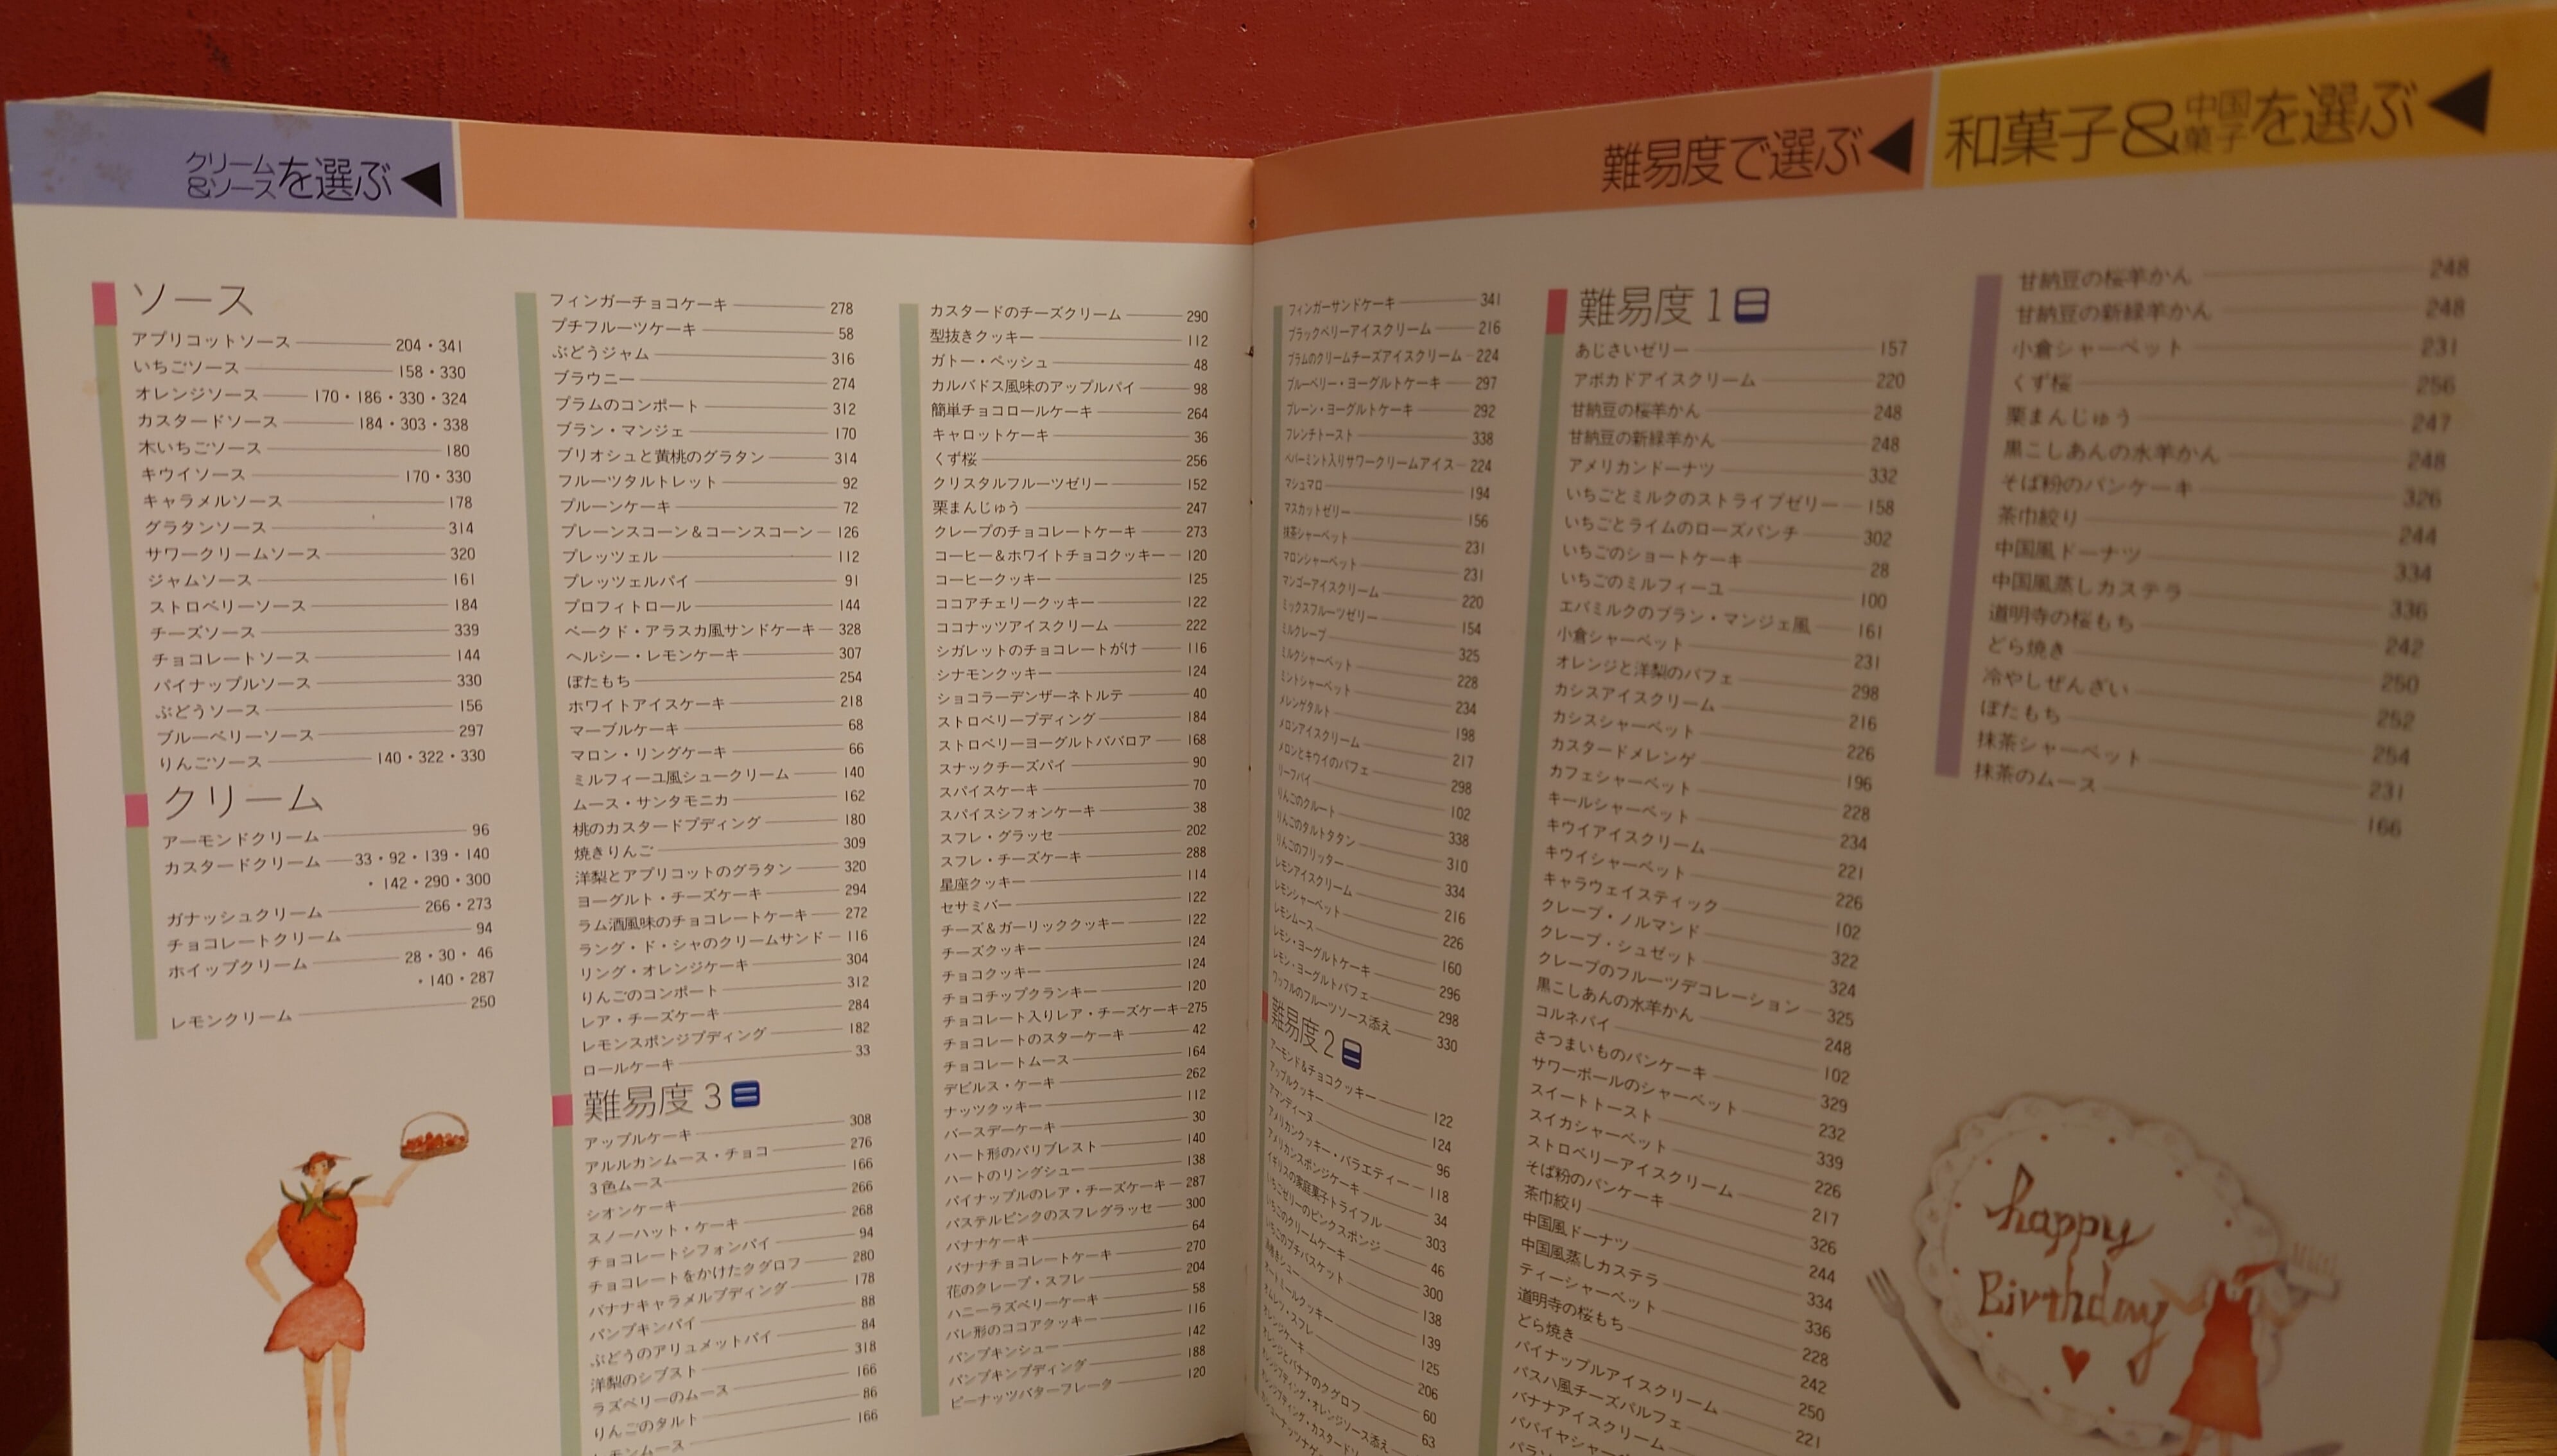 和菓子&中国菓子を選ぶ◀
甘納豆の桜羊かん 248
甘納豆の新緑羊かん 248
小倉シャーベット 231
くず桜 256
栗まんじゅう 247
黒こしあんの水羊かん 248
そば粉のパンケーキ 326
茶巾絞り 244
中国風ドーナツ 334
中国風蒸しカステラ 336
道明寺の桜もち 242
どら焼き 250
冷やしぜんざい 252
ぼたもち 254
抹茶シャーベット 231
抹茶のムース 166
happy
Birthday
難易度で選ぶ◀
難易度1
あじさいゼリー 157
アボカドアイスクリーム 220
甘納豆の桜羊かん 248
甘納豆の新緑羊かん 248
アメリカンドーナツ 332
いちごとミルクのストライプゼリー 158
いちごとライムのローズパンチ 302
いちごのショートケーキ 28
いちごのミルフィーユ 100
エバミルクのブラン・マンジェ風 161
小倉シャーベット 231
オレンジと洋梨のパフェ 298
カシスアイスクリーム 216
カシスシャーベット 226
カスタードメレンゲ 196
カフェシャーベット 228
キールシャーベット 234
キウイアイスクリーム 221
キウイシャーベット 226
キャラウェイスティック 102
クレープ・ノルマンド 322
クレープ・シュゼット 324
クレープのフルーツデコレーション 325
黒こしあんの水羊かん 248
コルネパイ 102
さつまいものパンケーキ 329
サワーボールのシャーベット 232
スイートトースト 339
スイカシャーベット 226
ストロベリーアイスクリーム 217
そば粉のパンケーキ 326
茶巾絞り 244
中国風ドーナツ 334
中国風蒸しカステラ 336
ティーシャーベット 228
道明寺の桜もち 242
どら焼き 250
パイナップルアイスクリーム 221
パスハ風チーズパルフェ
バナナアイスクリーム
パパイヤシャー
フィンガーサンドケーキ 341
ブラックベリーアイスクリーム 216
プラムのクリームチーズアイスクリーム 224
ブルーベリー・ヨーグルトケーキ 297
プレーン・ヨーグルトケーキ 292
フレンチトースト 338
ペパーミント入りサワークリームアイス 224
マシュマロ 194
マスカットゼリー 156
抹茶シャーベット 231
マロンシャーベット 231
マンゴーアイスクリーム 220
ミックスフルーツゼリー 154
ミルクレープ 325
ミルクシャーベット 228
ミントシャーベット 234
メレンゲタルト 198
メロンアイスクリーム 217
メロンとキウイのパフェ 298
リーフパイ 102
りんごのクルート 338
りんごのタルトタタン 310
りんごのフリッター 334
レモンアイスクリーム 216
レモンシャーベット 226
レモンムース 160
レモン・ヨーグルトケーキ 296
レモン・ヨーグルトパフェ 298
ワッフルのフルーツソース添え 330
難易度2
アーモンド&チョコクッキー 122
アップルクッキー 124
アマンディーヌ 96
アメリカンクッキー・バラエティー 118
アメリカンスポンジケーキ 34
イギリスの家庭菓子トライフル 303
いちごゼリーのピンクスポンジ 46
いちごのクリームケーキ 300
いちごのプチバスケット 138
渦巻きシュー 139
オートミールクッキー 125
オムレツ・スフレ 206
オレンジケーキ 60
オレンジとバナナのクグロフ 63
オレンジプディング・オレンジソース添え
カスタードのチーズクリーム 290
型抜きクッキー 112
ガトー・ペッシュ 48
カルバドス風味のアップルパイ 98
簡単チョコロールケーキ 264
キャロットケーキ 36
くず桜 256
クリスタルフルーツゼリー 152
栗まんじゅう 247
クレープのチョコレートケーキ 273
コーヒー&ホワイトチョコクッキー 120
コーヒークッキー 125
ココアチェリークッキー 122
ココナッツアイスクリーム 222
シガレットのチョコレートがけ 116
シナモンクッキー 124
ショコラーデンザーネトルテ 40
ストロベリープディング 184
ストロベリーヨーグルトババロア 168
スナックチーズパイ 90
スパイスケーキ 70
スパイスシフォンケーキ 38
スフレ・グラッセ 202
スフレ・チーズケーキ 288
星座クッキー 114
セサミバー 122
チーズ&ガーリッククッキー 122
チーズクッキー 124
チョコクッキー 124
チョコチップクランキー 120
チョコレート入りレア・チーズケーキ 275
チョコレートのスターケーキ 42
チョコレートムース 164
デビルス・ケーキ 262
ナッツクッキー 112
バースデーケーキ 30
ハート形のパリブレスト 140
ハートのリングシュー 138
パイナップルのレア・チーズケーキ 287
パステルピンクのスフレグラッセ 300
バナナケーキ 64
バナナチョコレートケーキ 270
花のクレープ・スフレ 204
ハニーラズベリーケーキ 58
バレ形のココアクッキー 116
パンプキンシュー 142
パンプキンプディング 188
ピーナッツバターフレーク 120
フィンガーチョコケーキ 278
プチフルーツケーキ 58
ぶどうジャム 316
ブラウニー 274
プラムのコンポート 312
ブラン・マンジェ 170
ブリオシュと黄桃のグラタン 314
フルーツタルトレット 92
プルーンケーキ 72
プレーンスコーン&コーンスコーン 126
プレッツェル 112
プレッツェルパイ 91
プロフィトロール 144
ベークド・アラスカ風サンドケーキ 328
ヘルシー・レモンケーキ 307
ぼたもち 254
ホワイトアイスケーキ 218
マーブルケーキ 68
マロン・リングケーキ 66
ミルフィーユ風シュークリーム 140
ムース・サンタモニカ 162
桃のカスタードプディング 180
焼きりんご 309
洋梨とアプリコットのグラタン 320
ヨーグルト・チーズケーキ 294
ラム酒風味のチョコレートケーキ 272
ラング・ド・シャのクリームサンド 116
リング・オレンジケーキ 304
りんごのコンポート 312
レア・チーズケーキ 284
レモンスポンジプディング 182
ロールケーキ 33
難易度3
アップルケーキ 308
アルルカンムース・チョコ 276
3色ムース 166
シオンケーキ 266
スノーハット・ケーキ 268
チョコレートシフォンパイ 94
チョコレートをかけたクグロフ 280
バナナキャラメルプディング 178
パンプキンパイ 88
ぶどうのアリュメットパイ 84
洋梨のシブスト 318
ラズベリーのムース 166
りんごのタルト 86
レモンムース 166
クリーム&ソースを選ぶ◀
ソース
アプリコットソース 204・341
いちごソース 158・330
オレンジソース 170・186・330・324
カスタードソース 184・303・338
木いちごソース 180
キウイソース 170・330
キャラメルソース 178
グラタンソース 314
サワークリームソース 320
ジャムソース 161
ストロベリーソース 184
チーズソース 339
チョコレートソース 144
パイナップルソース 330
ぶどうソース 156
ブルーベリーソース 297
りんごソース 140・322・330
クリーム
アーモンドクリーム 96
カスタードクリーム 33・92・139・140
・142・290・300
ガナッシュクリーム 266・273
チョコレートクリーム 94
ホイップクリーム 28・30・46
・140・287
レモンクリーム 250